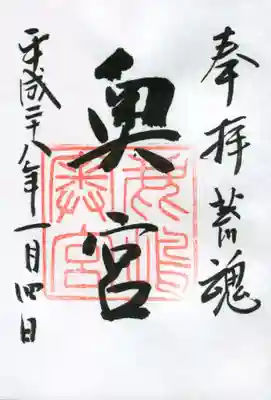 奉拝 荒魂
奥宮
平成二十八年一月四日
奥宮